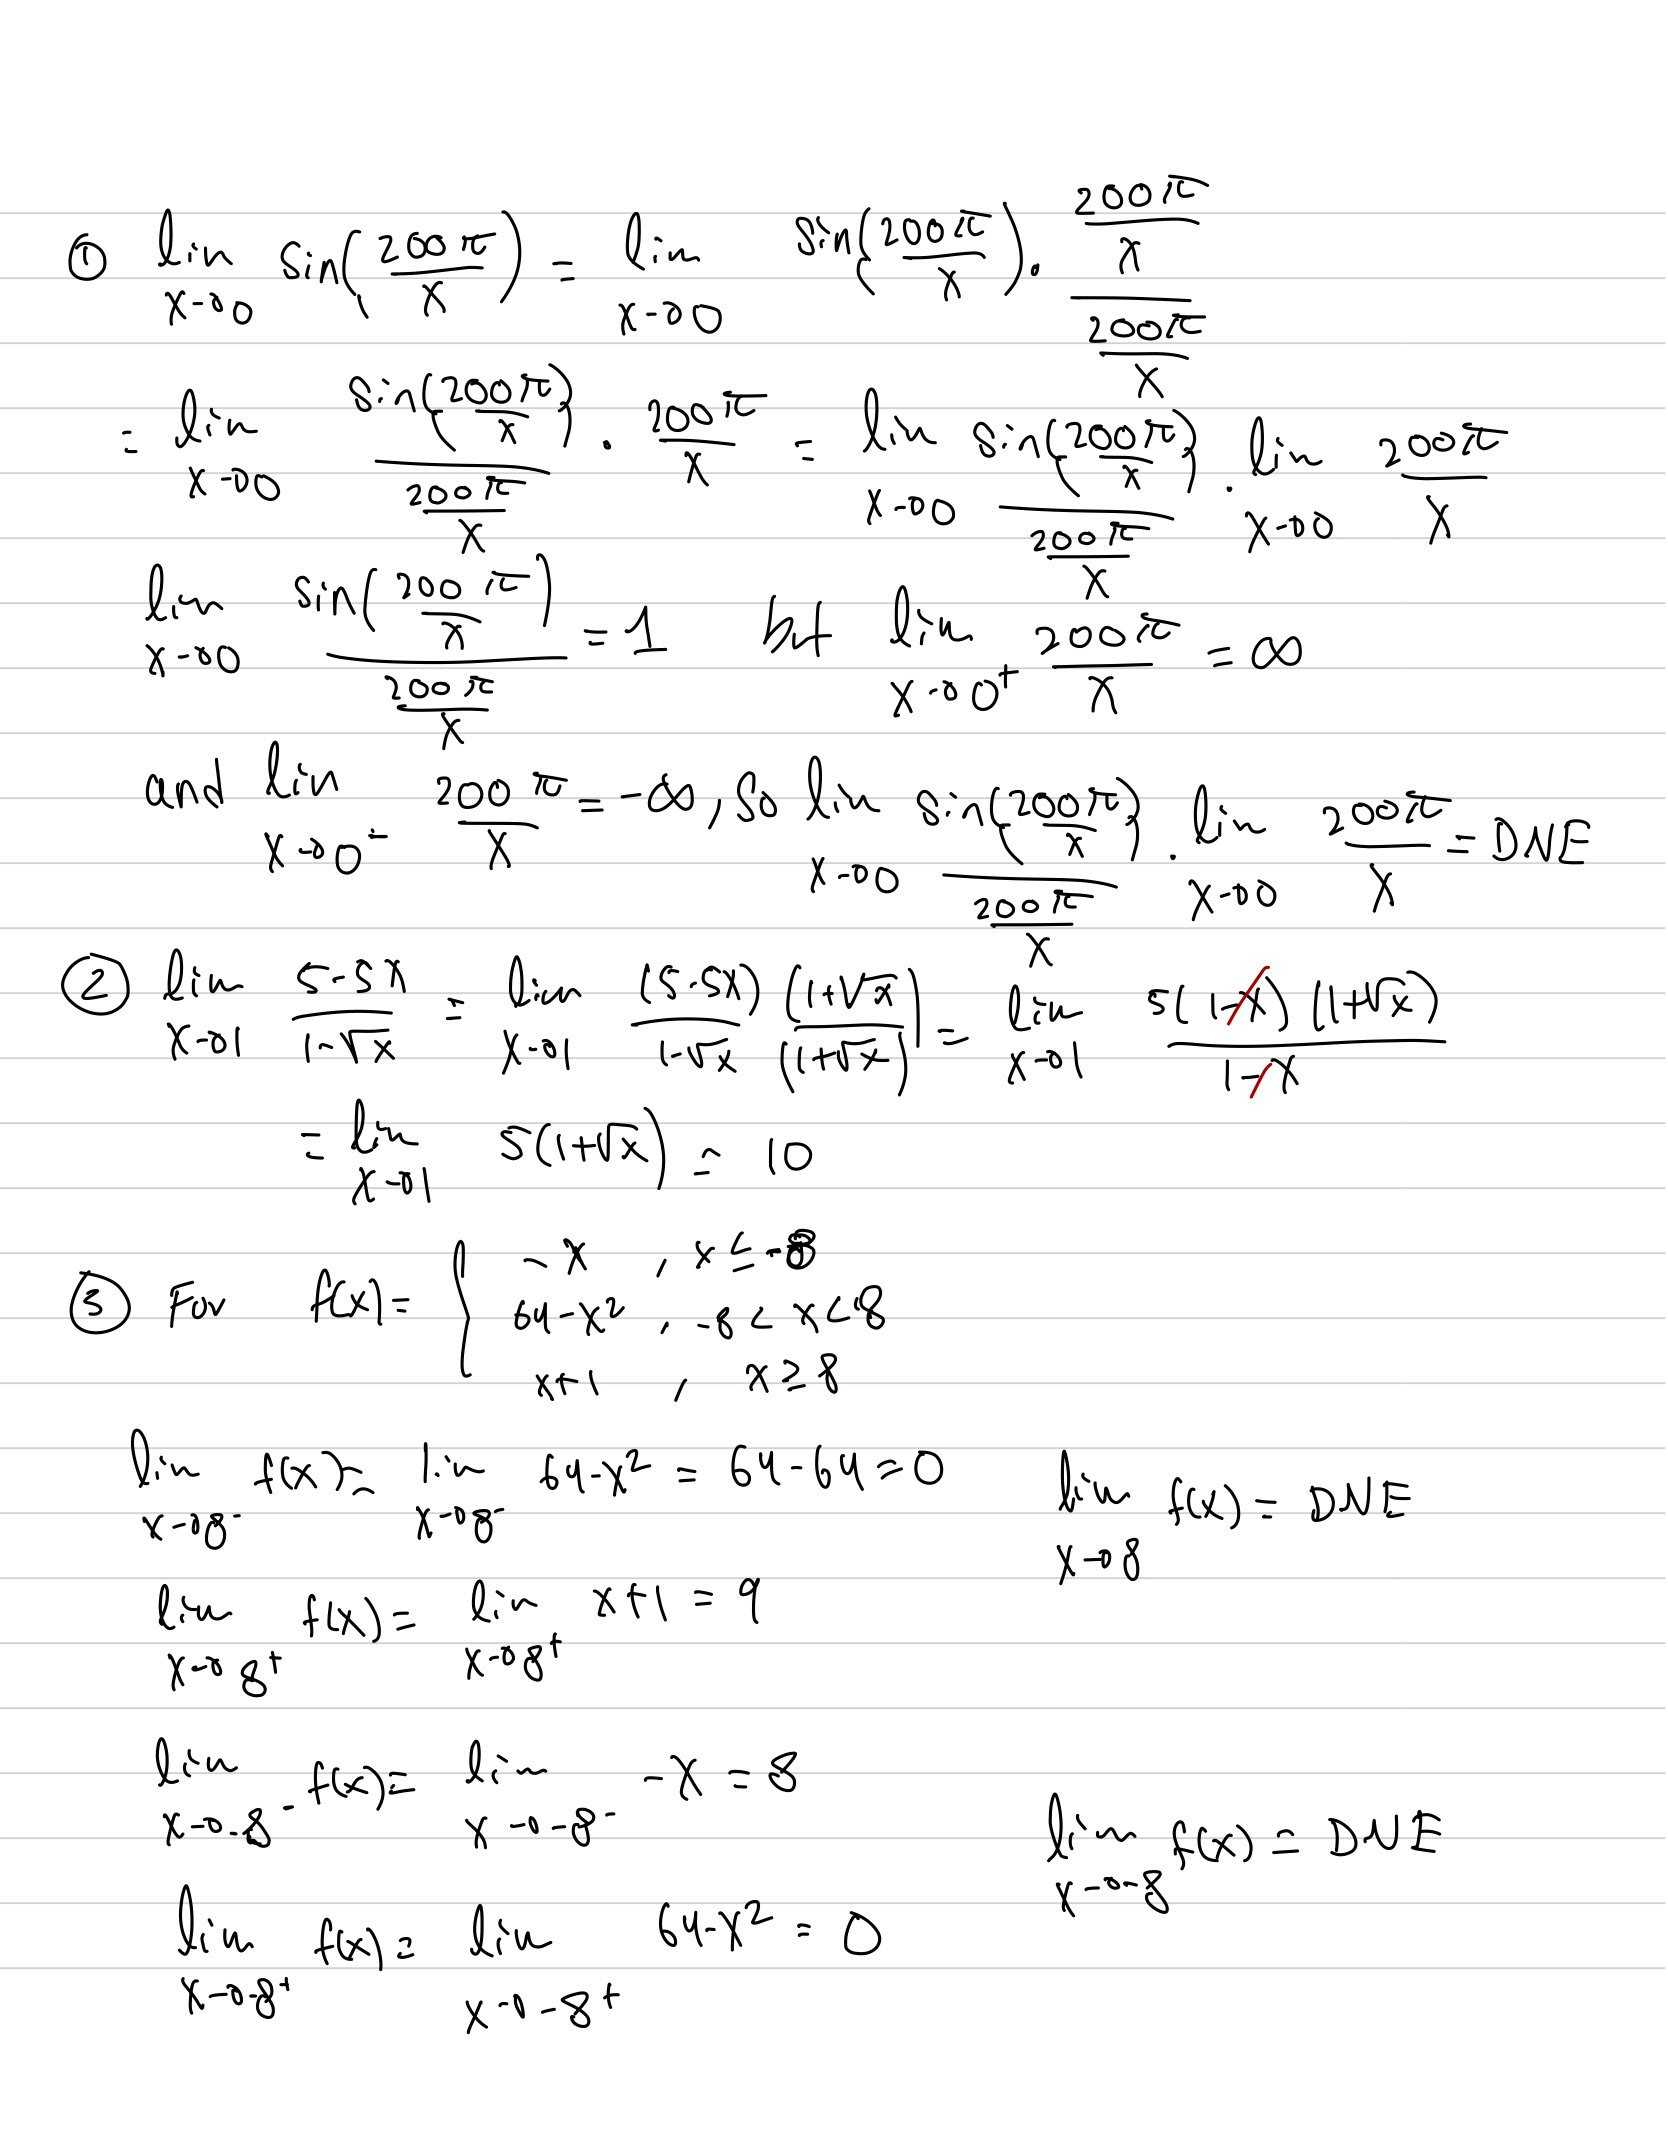 ① lim x→0 sin(200π/x) = lim x→0 sin(200π/x) · (200π/x)/(200π/x)
= lim x→0 sin(200π/x)/(200π/x) · 200π/x = lim x→0 sin(200π/x)/(200π/x) · lim x→0 200π/x
lim x→0 sin(200π/x)/(200π/x) = 1 but lim x→0⁺ 200π/x = ∞
and lim x→0⁻ 200π/x = -∞, so lim x→0 sin(200π/x)/(200π/x) · lim x→0 200π/x = DNE
② lim x→1 (5-5x)/(1-√x) = lim x→1 (5-5x)/(1-√x) (1+√x)/(1+√x) = lim x→1 5(1-x)(1+√x)/(1-x)
= lim x→1 5(1+√x) = 10
③ For f(x) = { -x , x ≤ -8
64-x² , -8 < x < 8
x+1 , x ≥ 8
lim x→8⁻ f(x) = lim x→8⁻ 64-x² = 64-64 = 0
lim x→8 f(x) = DNE
lim x→8⁺ f(x) = lim x→8⁺ x+1 = 9
lim x→-8⁻ f(x) = lim x→-8⁻ -x = 8
lim x→-8 f(x) = DNE
lim x→-8⁺ f(x) = lim x→-8⁺ 64-x² = 0